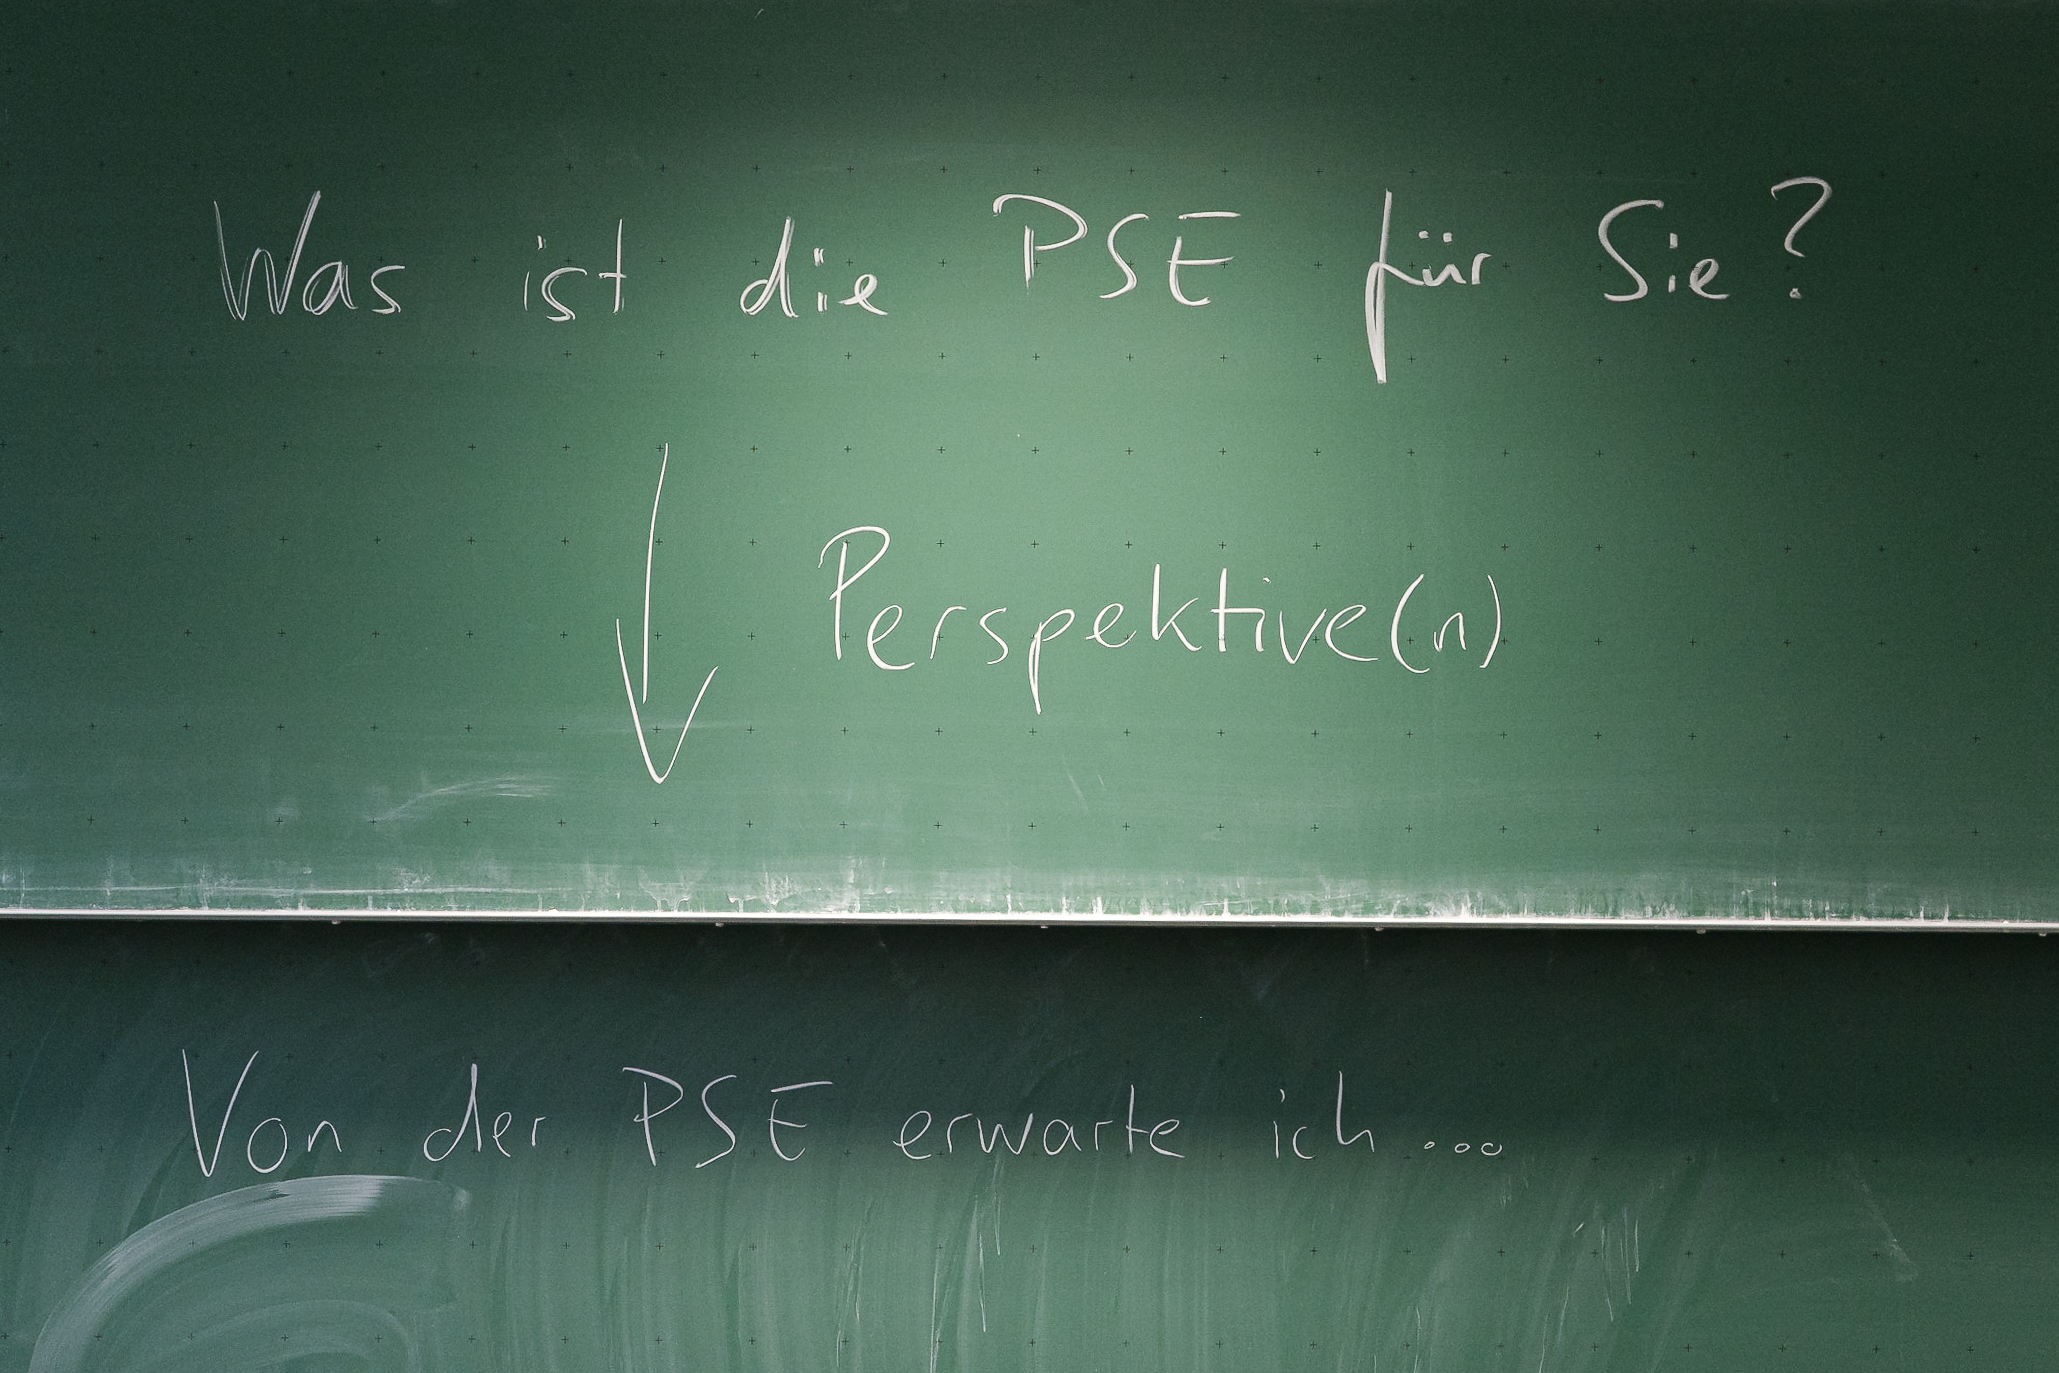 Was ist die PSE für Sie?
Perspektive(n)
Von der PSE erwarte ich ...